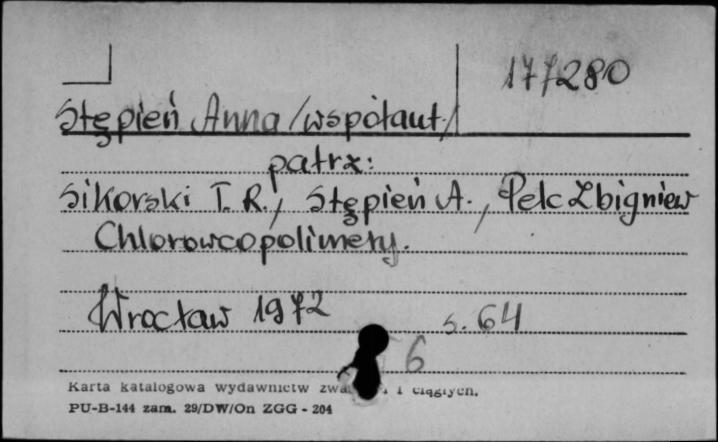 177280
Stępień Anna /współaut./
patrz:
Sikorski T. R., Stępień A., Pelc Zbigniew
Chlorowcopolimery.
Wrocław 1972 s. 64
6
Karta katalogowa wydawnictw i ciągłych.
PU-B-144 zam. 29/DW/On ZGG - 204